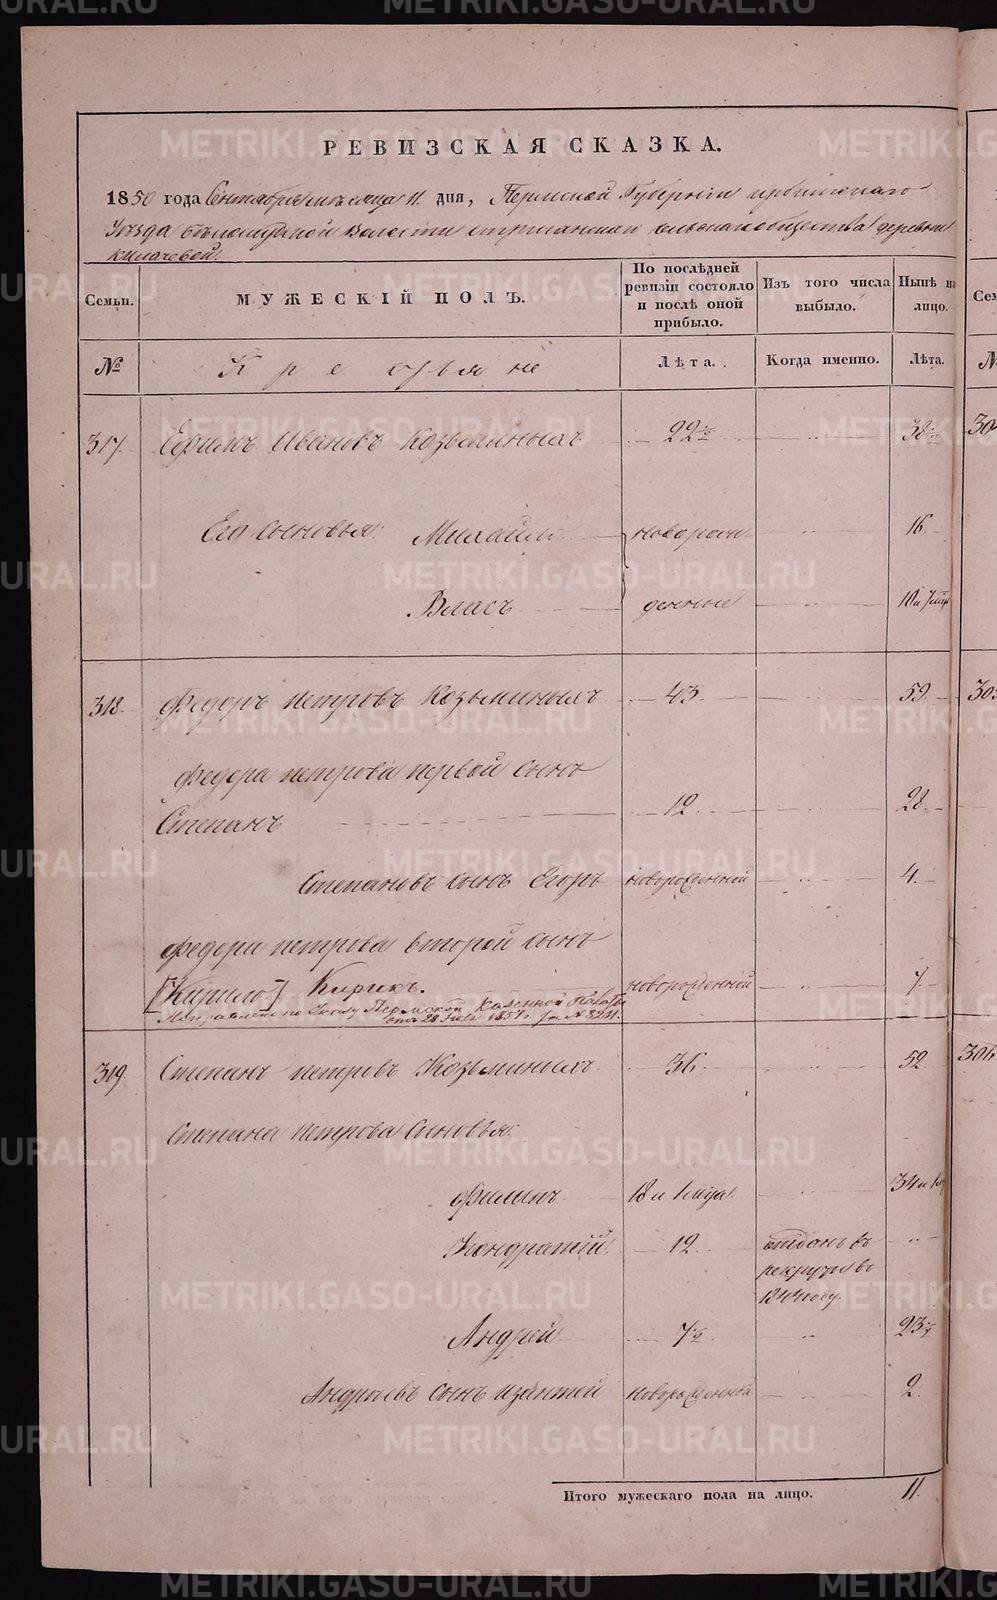 РЕВИЗСКАЯ СКАЗКА.
1850 года Сентября месяца 11. дня, Пермской Губернiи ирбитскаго
Уѣзда бѣлослудской Волости стриганской сельскаго общества деревни
килачевой.
Семьи.
МУЖЕСКIЙ ПОЛЪ.
По послѣдней
ревизiи состояло
и послѣ оной
прибыло.
Изъ того числа
выбыло.
Нынѣ на
лицо.
№
Крестьяне
Лѣта.
Когда именно.
Лѣта.
317. Ефимъ Ивановъ Козьминыхъ 22 ½ 38 ½
Его сыновья: Михайло новорож 16
Власъ денные 10 и 7 мѣс
318. Федоръ петровъ Козьминыхъ 43 59
Федора петрова первой сынъ
Степанъ 12 28
Степановъ сынъ Егоръ новорожденной 4
Федора петрова второй сынъ
[Кирило] Кирикъ. новорожденной 7
Исправлено по Указу Пермской Казенной Палаты
319. Степанъ петровъ Козьминыхъ 36 52
Степана петрова сыновья:
Филипъ 18 и 1 мѣся 34 и
Кондратiй 12 отданъ въ
рекруты въ
1844 году
Андрей 7 ½ 23 ½
Андреевъ сынъ новорожденной 2
Итого мужескаго пола на лицо. 11.
Сем
№
306
METRIKI.GASO-URAL.RU